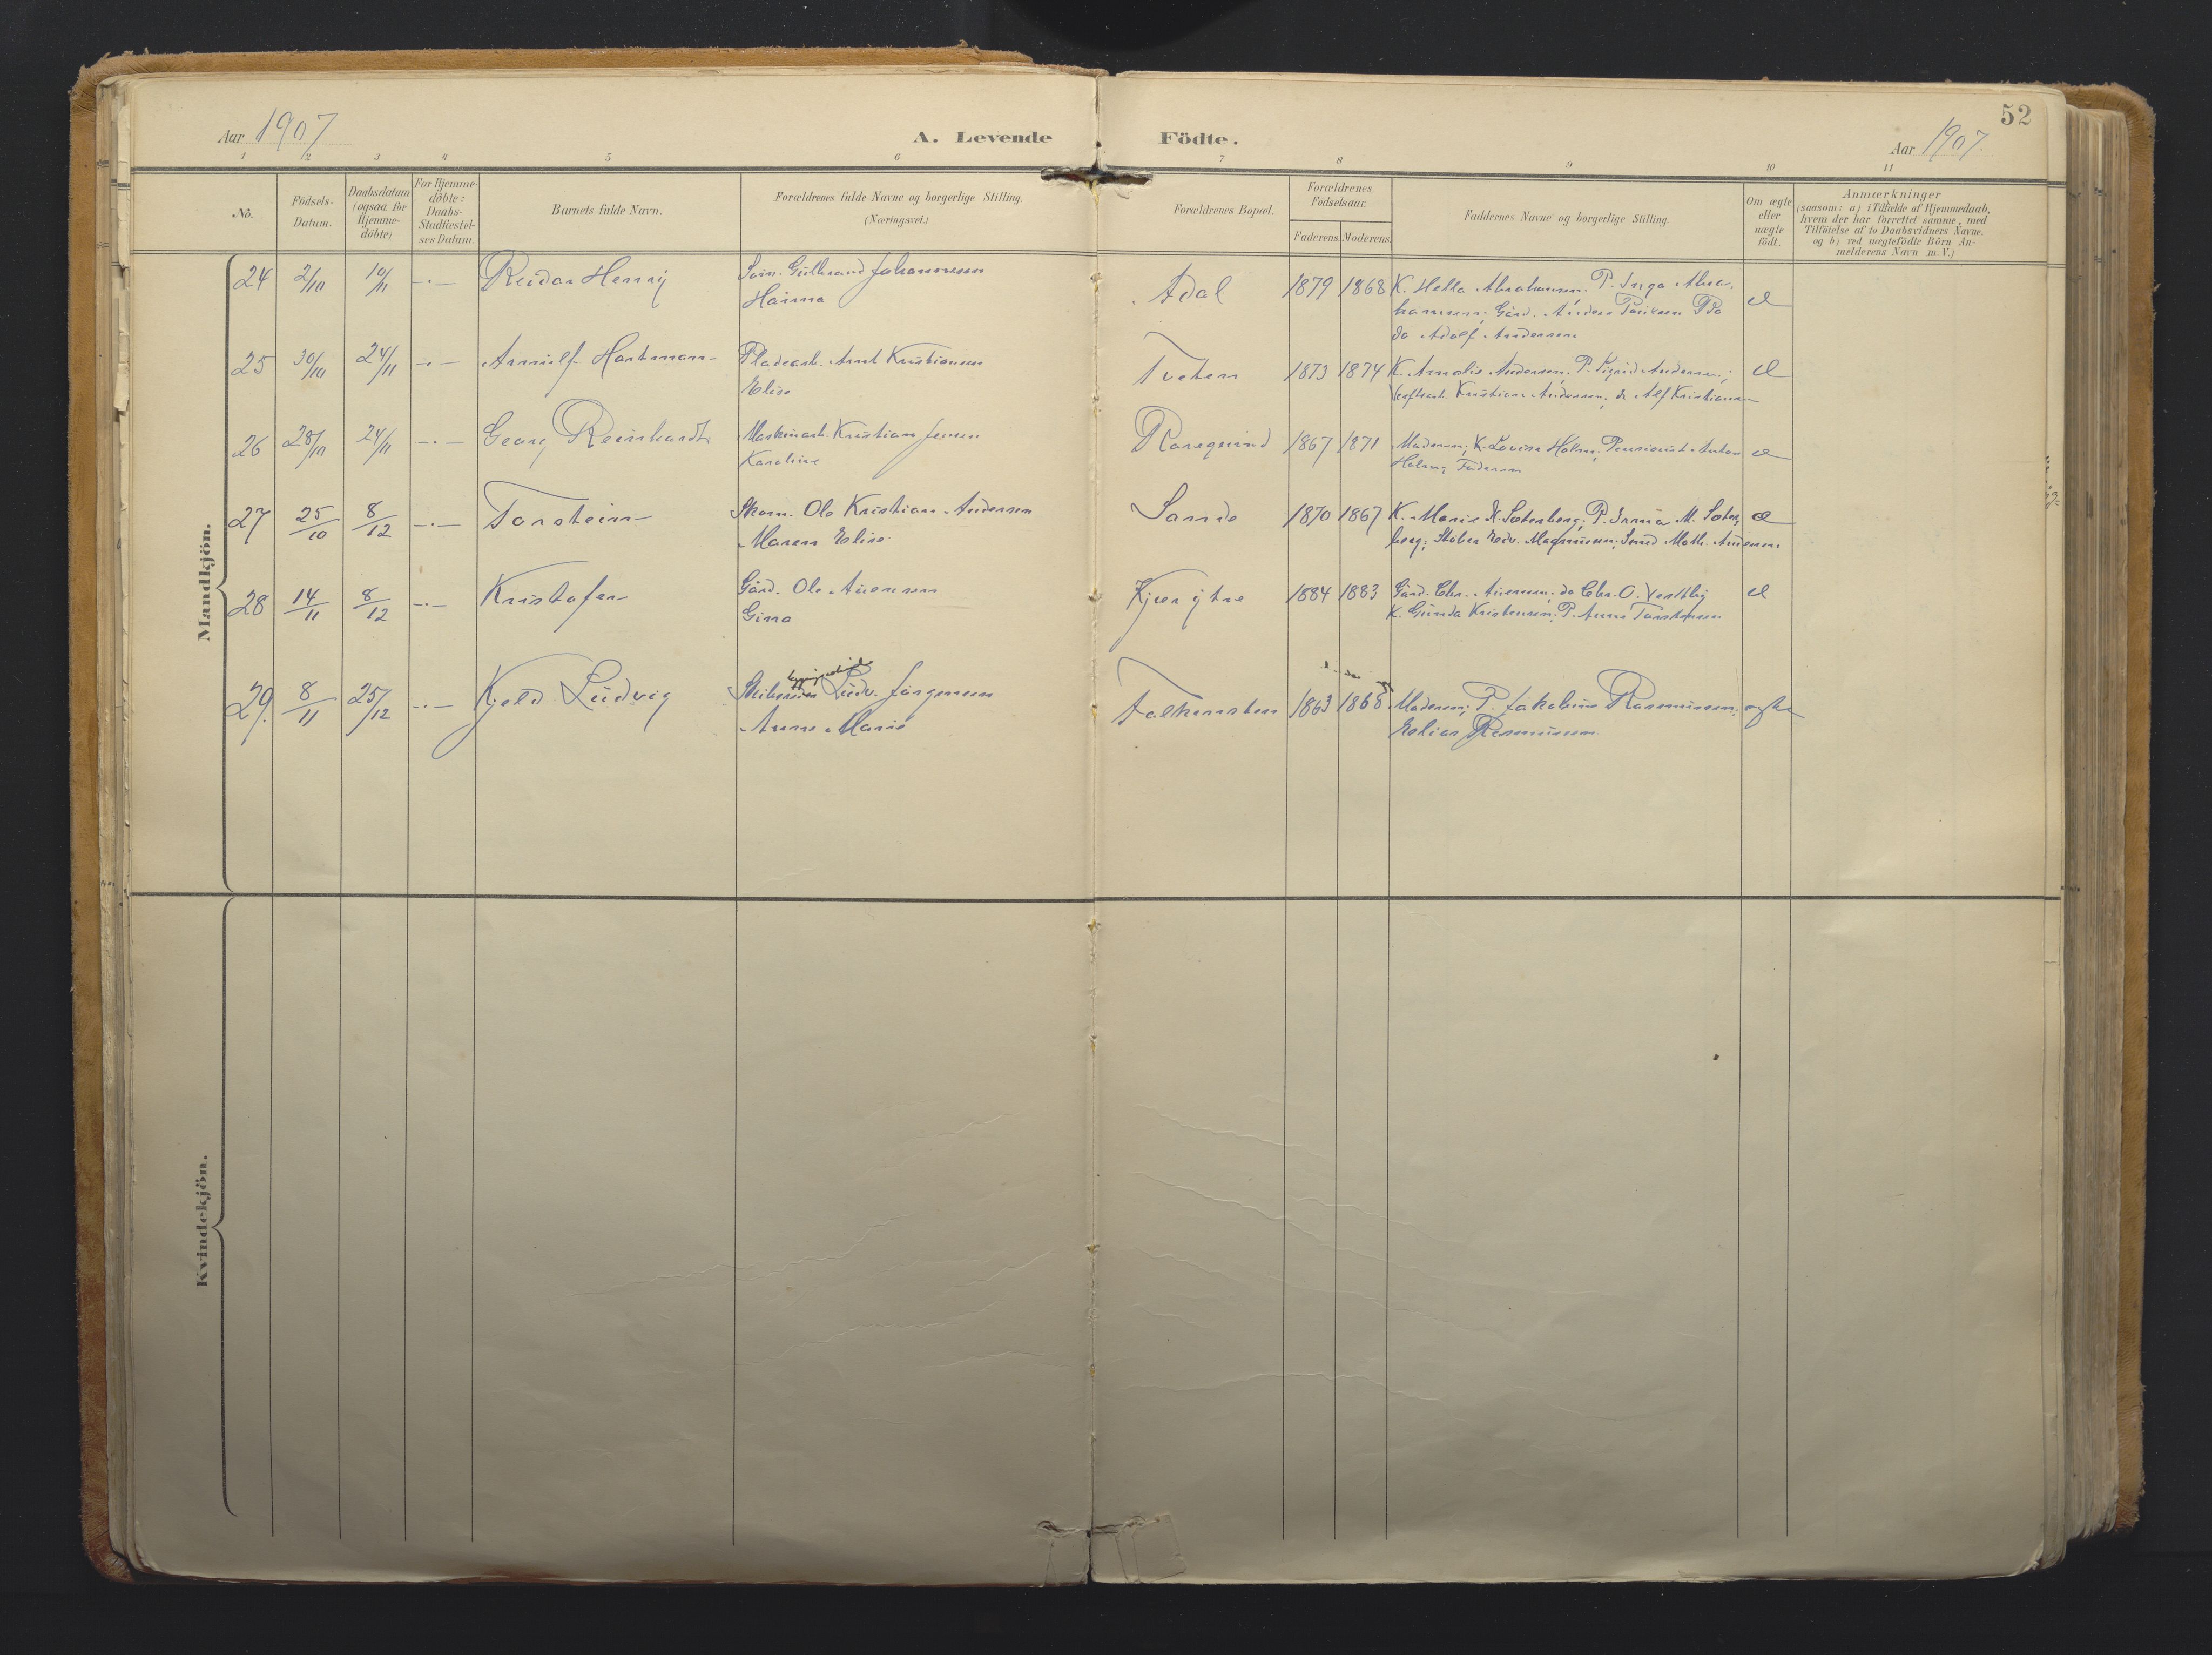 52
Aar 1907
A. Levende Födte.
Aar 1907.
1 2 3 4 5 6 7 8 9 10 11
No.
Födsels-
Datum.
Daabsdatum
(ogsaa för
Hjemme-
döbte)
For Hjemme-
döbte:
Daabs-
Stadfæstel-
ses Datum.
Barnets fulde Navn.
Forældrenes fulde Navne og borgerlige Stilling.
(Næringsvei.)
Forældrenes Bopæl.
Forældrenes
Födselsaar.
Faderens. Moderens.
Faddernes Navne og borgerlige Stilling.
Om ægte
eller
uægte
födt.
Anmærkninger
(saasom: a) i Tilfælde af Hjemmedaab,
hvem der har forrettet samme, med
Tilföielse af to Daabsvidners Navne.
og b) ved uægtefödte Börn An-
melderens Navn m. V.)
Mandkjön.
24 2/10 10/11 -.- Reidar Henry
Gulbrand Johannesen
Hanna
Adal 1879 1868 K. Hella Abrahamsen. P. Inga Abra-
hamsen; Gård. Anders
do Adolf Andersen
25 30/10 24/11 -.- Arnulf Hartman
Pladearb. Arnt Kristiansen
Elise
Tveten 1873 1874 K. Amalie Andersen. P. Sigrid Andersen;
Verftsarb. Kristian Andersen; do Alf Kristiansen
26 28/10 24/11 -.- Georg Reinhardt
Maskinarb. Kristian Jensen
Karoline
1867 1871 Moderen; K. Lovise Holm; Pensionist Anton
Holm; Faderen
27 25/10 8/12 -.- Torstein
Skom. Ole Kristian Andersen
Maren Elise
Sande 1870 1867 K. Marie K. Soterberg; P. Inna M. Soter-
berg; Edv. Magnussen; Smed Math.
28 14/11 8/12 -.- Kristofer
Gård. Ole
Gina
Kjær ytre 1884 1883 Gård. Chr. do Chr. O. Vestby
K. Gunda Kristensen; P. Anna
29. 8/11 25/12 -.- Kjeld Ludvig
Ludv. Jørgensen
Anne Marie
Falkensten 1863 1868 Moderen; P. Jakobine Rasmussen;
Elias Rasmussen
Kvindekjön.